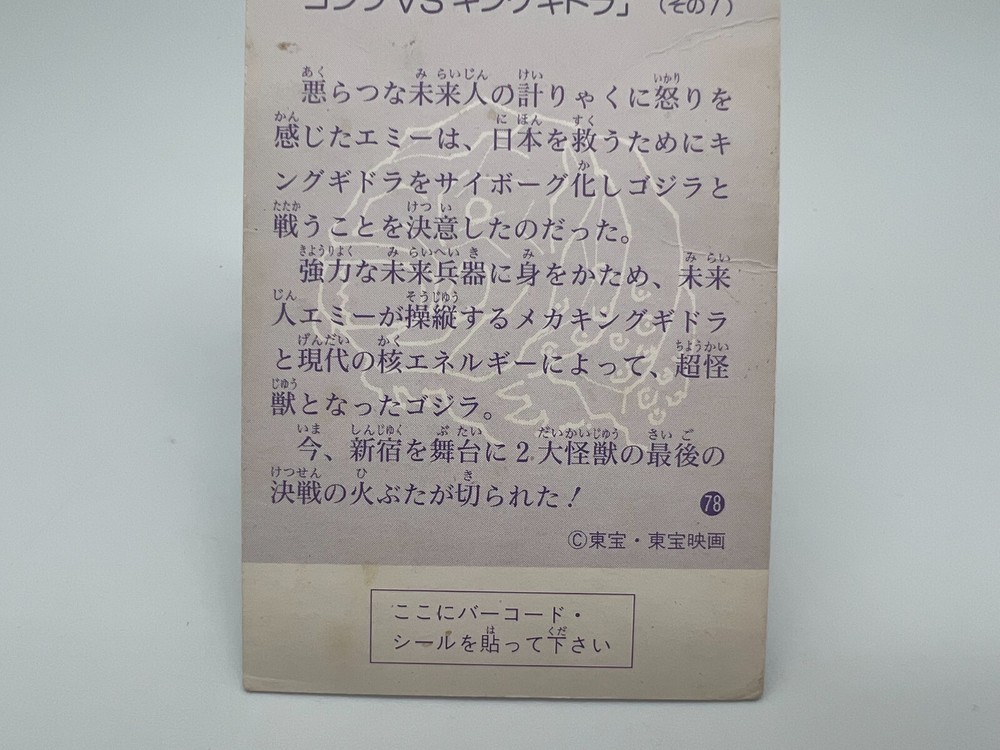 ゴジラVSキングギドラ」(その7)
悪らつな未来人の計りゃくに怒りを
感じたエミーは、日本を救うためにキ
ングギドラをサイボーグ化しゴジラと
戦うことを決意したのだった。
強力な未来兵器に身をかため、未来
人エミーが操縦するメカキングギドラ
と現代の核エネルギーによって、超怪
獣となったゴジラ。
今、新宿を舞台に2大怪獣の最後の
決戦の火ぶたが切られた!
78
©東宝・東宝映画
ここにバーコード・
シールを貼って下さい